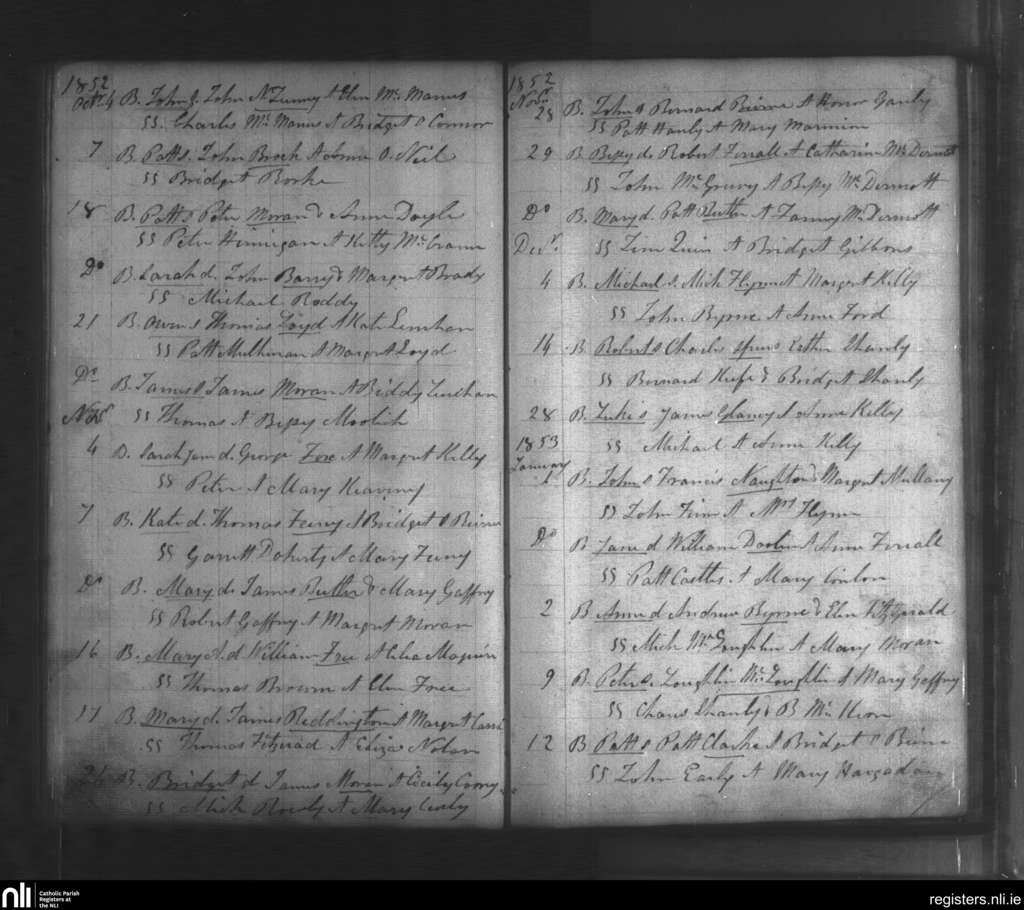 1852
Octr. 4 B. John s. John McTunny & Elen McManus
SS. Charles McManus & Bridget O Connor
7 B. Patt s. John Brock & Anne O. Neil
SS Bridget Rorke
18 B. Patt s Peter Moran & Anne Doyle
SS Peter Hinnigan & Kitty McCrann
Do B. Sarah d. John Barry & Margret Brady
SS Michael Roddy
21 B. Owen s Thomas Loyd & Kate Lenehan
SS Patt Mulhinan & Margret Loyd
Do B. James s James Moran & Biddy Lenehan
Novr SS Thomas & Bessy
4 B. Sarah Jane d. George Fox & Margret Kelly
SS Peter & Mary Keaveny
7 B. Kate d. Thomas Feeny & Bridget O Beirne
SS Garrett Doherty & Mary Feeny
Do B. Mary d. James Butler & Mary Gaffny
SS Robert Gaffny & Margret Moran
16 B. Mary A. d William Free & Celia Maguire
SS Thomas Brown & Elen Free
17 B. Mary d. James Reddington & Margret
SS Thomas Fitzrad & Eliza Nolan
B. Bridget d James Moran & Cecily
SS Mick & Mary
1852
Novr.
28 B. John s Bernard Beirne & Honor Ganly
SS Patt Hanly & Mary
29 B Bessy d. Robert Ferrall & Catharine McDermott
SS John McGreevy & Bessy McDermott
Do B. Mary d. Patt Butler & Fanny McDermott
Decr. SS Tim Quin & Bridget Gibbons
4 B. Michael s Mick Flynn & Margret Kelly
SS John Byrne & Anne Ford
14 B Robert s Charles Esther Shanly
SS Bernard Keefe & Bridget Shanly
28 B. Luke s James Glancy & Anne Kelly
1853 SS Michael & Anne Kelly
January
1 B. John s Francis Naughton & Margret Mullany
SS John Finn & Mrs Flynn
Do B Jane d William Doolin & Anne Ferrall
SS Patt Castles & Mary Conlon
2 B Anne d Andrew Byrne & Elen Fitzgerald
SS Mick McLoughlin & Mary Moran
9 B. Peter s. Loughlin McLoughlin & Mary Gaffny
SS Shanly & B McKeon
12 B Patt s Patt Clarke & Bridget O Beirne
SS John Early & Mary Hargadon
nli
Catholic Parish
Registers at
the NLI
registers.nli.ie